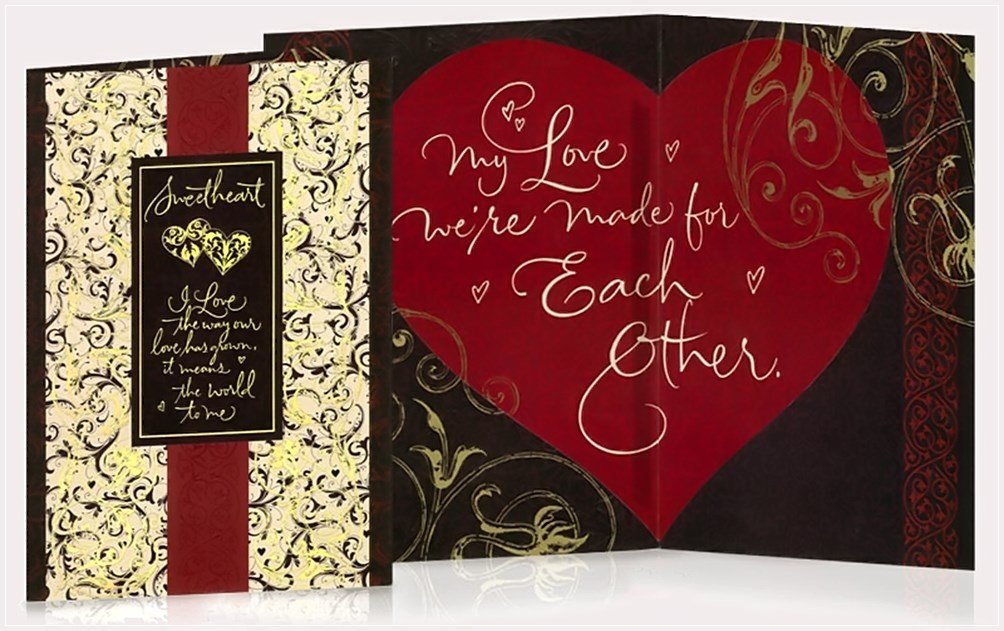 Sweetheart
I Love
the way our
love has grown,
it means
the world
to me
My Love
We're made for
Each
Other.